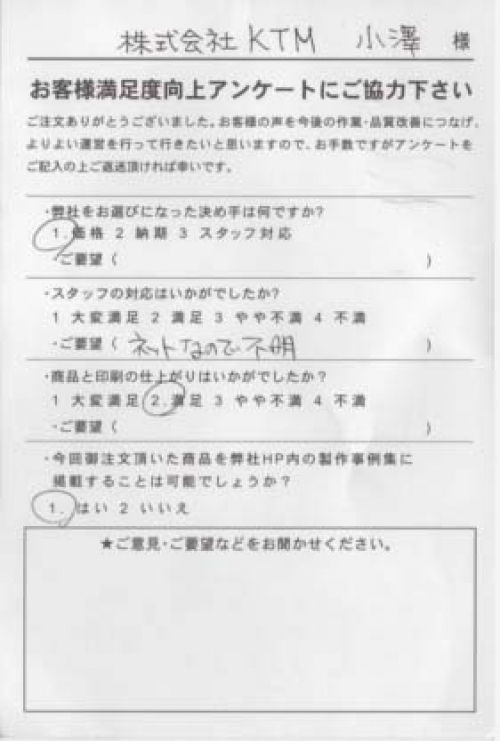 株式会社 KTM 小澤 様
お客様満足度向上アンケートにご協力下さい
ご注文ありがとうございました。お客様の声を今後の作業・品質改善につなげ、
よりよい運営を行って行きたいと思いますので、お手数ですがアンケートを
ご記入の上ご返送頂ければ幸いです。
・弊社をお選びになった決め手は何ですか?
1. 価格 2 納期 3 スタッフ対応
・ご要望 ( )
・スタッフの対応はいかがでしたか?
1 大変満足 2 満足 3 やや不満 4 不満
・ご要望 ( ネットなので不明 )
・商品と印刷の仕上がりはいかがでしたか?
1 大変満足 2. 満足 3 やや不満 4 不満
・ご要望 ( )
・今回御注文頂いた商品を弊社HP内の製作事例集に
掲載することは可能でしょうか?
1. はい 2 いいえ
★ご意見・ご要望などをお聞かせください。